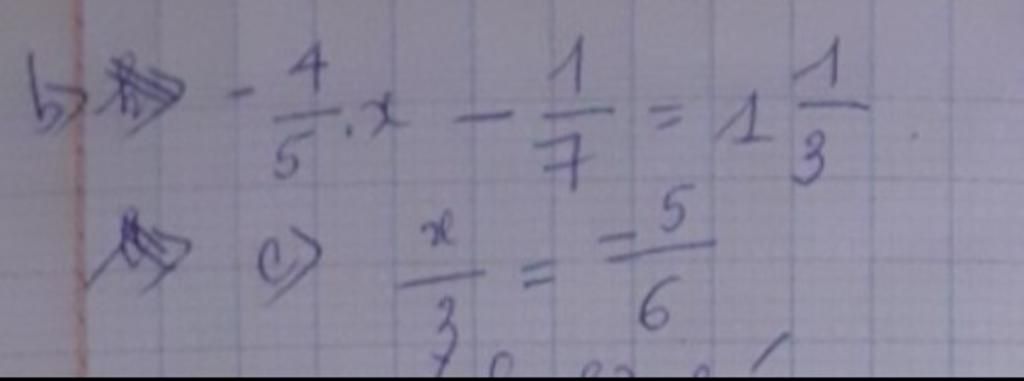 b) - 4/5 . x - 1/7 = 1 1/3
c) x/3 = -5/6